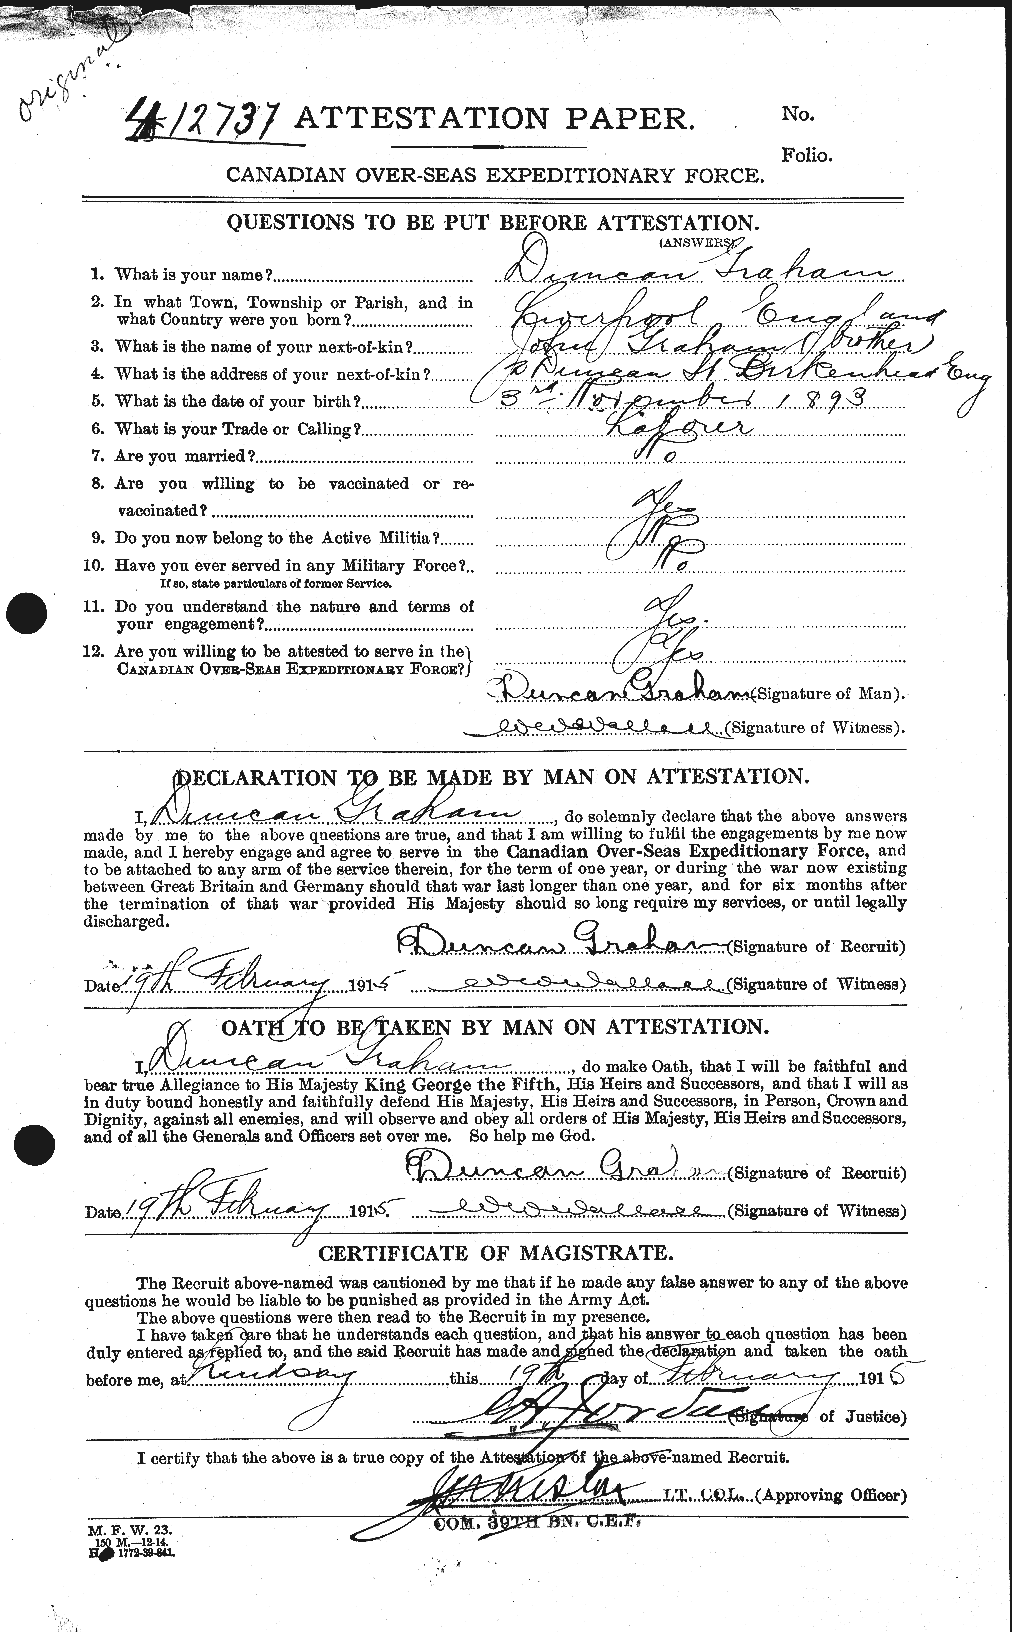 original
412737 ATTESTATION PAPER. No.
Folio.
CANADIAN OVER-SEAS EXPEDITIONARY FORCE.
QUESTIONS TO BE PUT BEFORE ATTESTATION.
(ANSWERS)
1. What is your name? Duncan Graham
2. In what Town, Township or Parish, and in
what Country were you born? Liverpool England
3. What is the name of your next-of-kin? John Graham brother
4. What is the address of your next-of-kin? Duncan St Birkenhead Eng
5. What is the date of your birth? 3rd November 1893
6. What is your Trade or Calling? Laborer
7. Are you married? No
8. Are you willing to be vaccinated or re-
vaccinated? Yes
9. Do you now belong to the Active Militia? No
10. Have you ever served in any Military Force? No
If so, state particulars of former Service.
11. Do you understand the nature and terms of
your engagement? Yes.
12. Are you willing to be attested to serve in the
CANADIAN OVER-SEAS EXPEDITIONARY FORCE? Yes
Duncan Graham (Signature of Man).
Wallace (Signature of Witness).
DECLARATION TO BE MADE BY MAN ON ATTESTATION.
I, Duncan Graham, do solemnly declare that the above answers
made by me to the above questions are true, and that I am willing to fulfil the engagements by me now
made, and I hereby engage and agree to serve in the Canadian Over-Seas Expeditionary Force, and
to be attached to any arm of the service therein, for the term of one year, or during the war now existing
between Great Britain and Germany should that war last longer than one year, and for six months after
the termination of that war provided His Majesty should so long require my services, or until legally
discharged.
Duncan Graham (Signature of Recruit)
Date 19th February 1915 Wallace (Signature of Witness)
OATH TO BE TAKEN BY MAN ON ATTESTATION.
I, Duncan Graham, do make Oath, that I will be faithful and
bear true Allegiance to His Majesty King George the Fifth, His Heirs and Successors, and that I will as
in duty bound honestly and faithfully defend His Majesty, His Heirs and Successors, in Person, Crown and
Dignity, against all enemies, and will observe and obey all orders of His Majesty, His Heirs and Successors,
and of all the Generals and Officers set over me. So help me God.
Duncan Graham (Signature of Recruit)
Date 19th February 1915. Wallace (Signature of Witness)
CERTIFICATE OF MAGISTRATE.
The Recruit above-named was cautioned by me that if he made any false answer to any of the above
questions he would be liable to be punished as provided in the Army Act.
The above questions were then read to the Recruit in my presence.
I have taken care that he understands each question, and that his answer to each question has been
duly entered as replied to, and the said Recruit has made and signed the declaration and taken the oath
before me, at Lindsay this 19th day of February 1915
Jordan (Signature of Justice)
I certify that the above is a true copy of the Attestation of the above-named Recruit.
Preston LT. COL. (Approving Officer)
COM. 39TH BN. C.E.F.
M. F. W. 23.
150 M.—12-14.
1772-39-841.